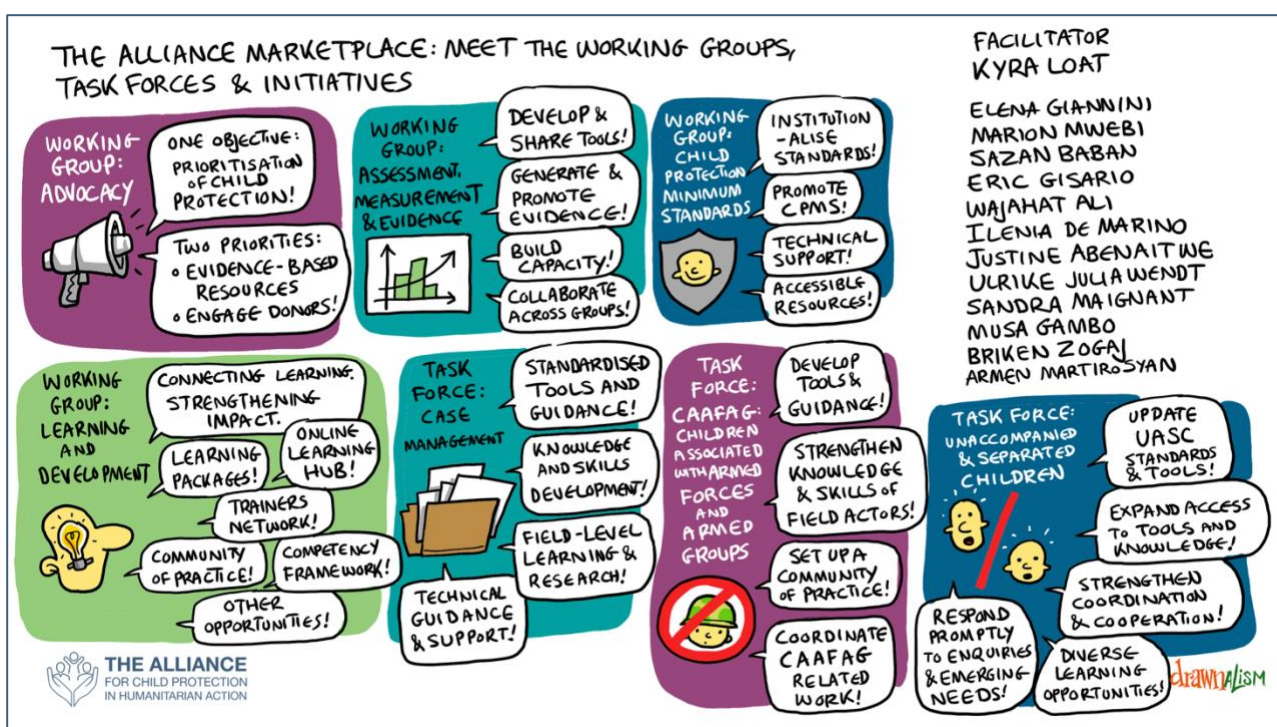 THE ALLIANCE MARKETPLACE: MEET THE WORKING GROUPS,
TASK FORCES & INITIATIVES
FACILITATOR
KYRA LOAT
ELENA GIANNINI
MARION MWEBI
SAZAN BABAN
ERIC GISARIO
WAJAHAT ALI
ILENIA DE MARINO
JUSTINE ABENAITWE
ULRIKE JULIA WENDT
SANDRA MAIGNANT
MUSA GAMBO
BRIKEN ZOGAJ
ARMEN MARTIROSYAN
WORKING
GROUP:
ADVOCACY
ONE OBJECTIVE:
PRIORITISATION
OF CHILD
PROTECTION!
TWO PRIORITIES:
o EVIDENCE-BASED
RESOURCES
o ENGAGE DONORS!
WORKING
GROUP:
ASSESSMENT,
MEASUREMENT
& EVIDENCE
DEVELOP &
SHARE TOOLS!
GENERATE &
PROMOTE
EVIDENCE!
BUILD
CAPACITY!
COLLABORATE
ACROSS GROUPS!
WORKING
GROUP:
CHILD
PROTECTION
MINIMUM
STANDARDS
INSTITUTION
-ALISE
STANDARDS!
PROMOTE
CPMS!
TECHNICAL
SUPPORT!
ACCESSIBLE
RESOURCES!
WORKING
GROUP:
LEARNING
AND
DEVELOPMENT
CONNECTING LEARNING.
STRENGTHENING
IMPACT.
LEARNING
PACKAGES!
ONLINE
LEARNING
HUB!
TRAINERS
NETWORK!
COMMUNITY
OF PRACTICE!
COMPETENCY
FRAMEWORK!
OTHER
OPPORTUNITIES!
TASK
FORCE:
CASE
MANAGEMENT
STANDARDISED
TOOLS AND
GUIDANCE!
KNOWLEDGE
AND SKILLS
DEVELOPMENT!
FIELD-LEVEL
LEARNING &
RESEARCH!
TECHNICAL
GUIDANCE
& SUPPORT!
TASK
FORCE:
CAAFAG:
CHILDREN
ASSOCIATED
WITH ARMED
FORCES
AND
ARMED
GROUPS
DEVELOP
TOOLS &
GUIDANCE!
STRENGTHEN
KNOWLEDGE
& SKILLS OF
FIELD ACTORS!
SET UP A
COMMUNITY
OF PRACTICE!
COORDINATE
CAAFAG
RELATED
WORK!
TASK FORCE:
UNACCOMPANIED
& SEPARATED
CHILDREN
UPDATE
UASC
STANDARDS
& TOOLS!
EXPAND ACCESS
TO TOOLS AND
KNOWLEDGE!
STRENGTHEN
COORDINATION
& COOPERATION!
RESPOND
PROMPTLY
TO ENQUIRIES
& EMERGING
NEEDS!
DIVERSE
LEARNING
OPPORTUNITIES!
THE ALLIANCE
FOR CHILD PROTECTION
IN HUMANITARIAN ACTION
drawnALISM